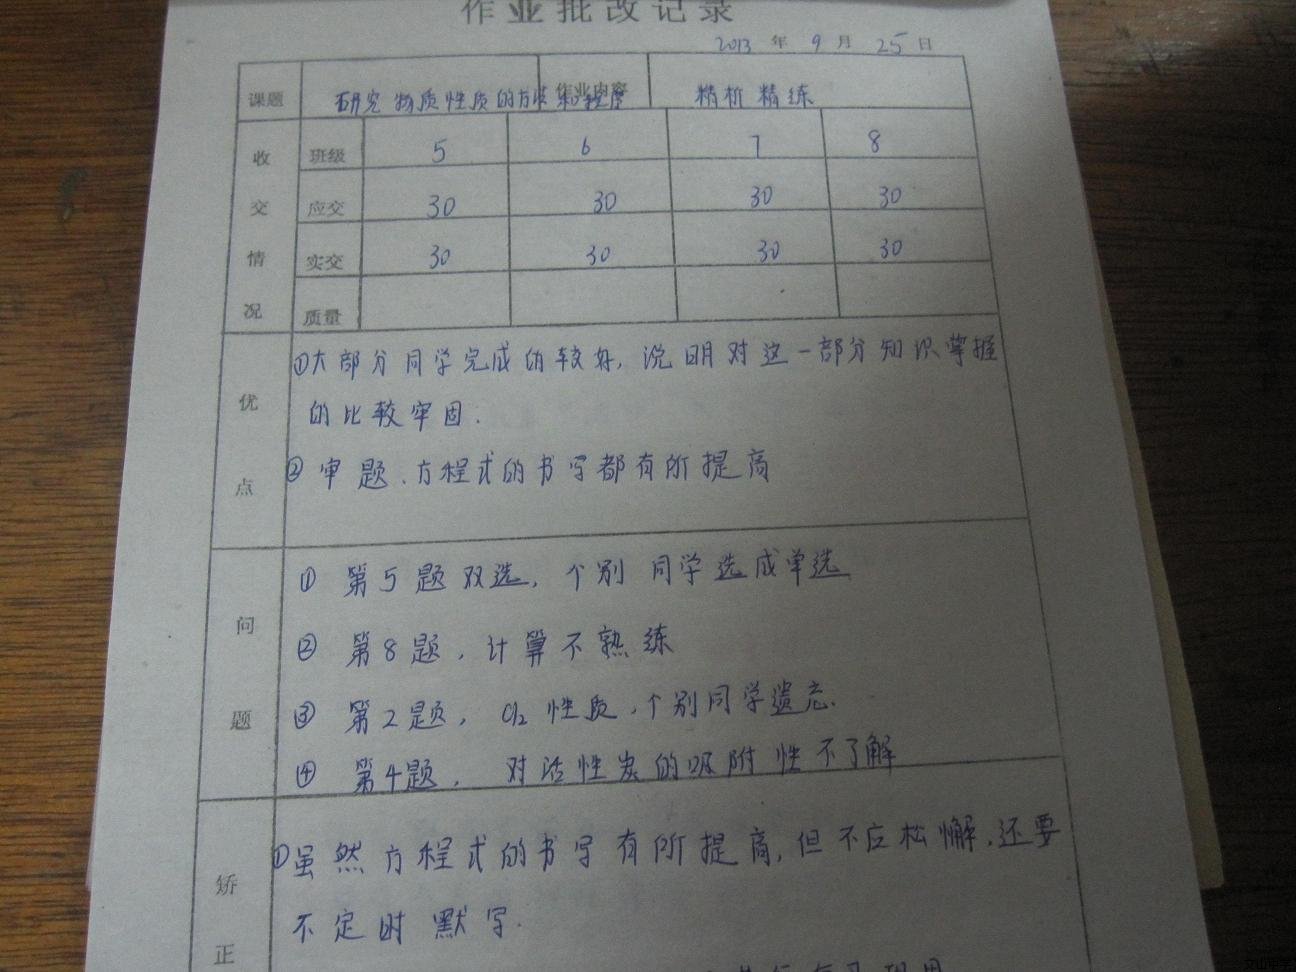 作业批改记录
2013 年 9 月 25 日
课题 研究物质性质的方法和程序 作业内容 精析精练
收交情况 班级 5 6 7 8
应交 30 30 30 30
实交 30 30 30 30
质量
优点
①大部分同学完成的较好,说明对这一部分知识掌握
的比较牢固.
②审题、方程式的书写都有所提高
问题
① 第5题双选,个别同学选成单选
② 第8题,计算不熟练
③ 第2题,Cl₂性质,个别同学遗忘.
④ 第4题,对活性炭的吸附性不了解
矫正
①虽然方程式的书写有所提高,但不应松懈,还要
不定时默写.